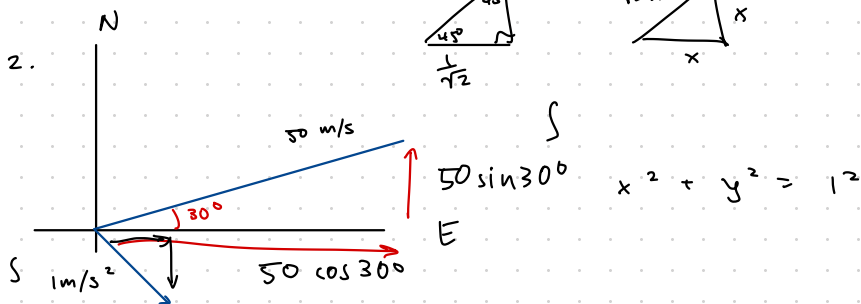 45°
1/√2
x
x
N
2.
50 m/s
30°
50 sin 30°
x² + y² = 1²
E
S
1m/s²
50 cos 30°